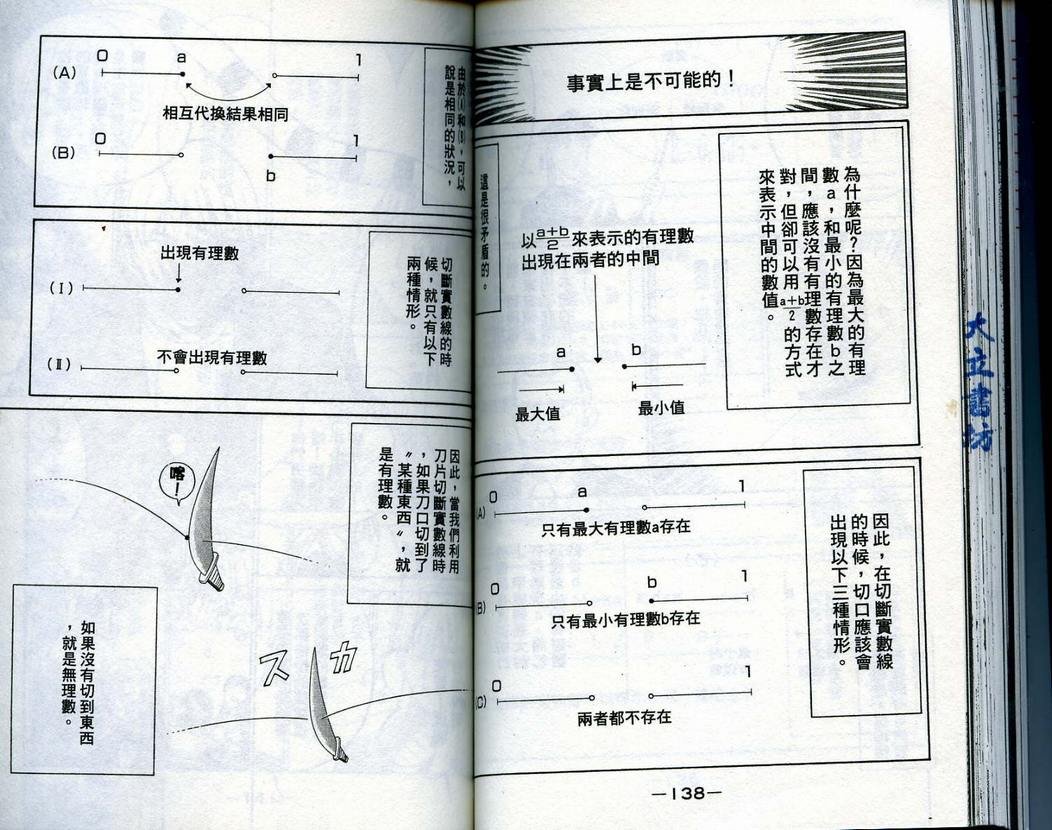 事實上是不可能的！
為什麼呢？因為最大的有理
數a，和最小的有理數b之
間，應該沒有有理數存在才
對，但卻可以用a+b/2的方式
來表示中間的數值。
以a+b/2來表示的有理數
出現在兩者的中間
a
b
最大值
最小值
這是很矛盾的。
因此，在切斷實數線
的時候，切口應該會
出現以下三種情形。
(A)
0
a
1
只有最大有理數a存在
(B)
0
b
1
只有最小有理數b存在
(C)
0
1
兩者都不存在
—138—
由於(A)和(B)，可以
說是相同的狀況，
(A)
0
a
1
相互代換結果相同
(B)
0
1
b
切斷實數線的時
候，就只有以下
兩種情形。
出現有理數
(I)
不會出現有理數
(II)
因此，當我們利用
刀片切斷實數線時
，如果刀口切到了
〝某種東西〞，就
是有理數。
喀！
スカ
如果沒有切到東西
，就是無理數。
大立書坊